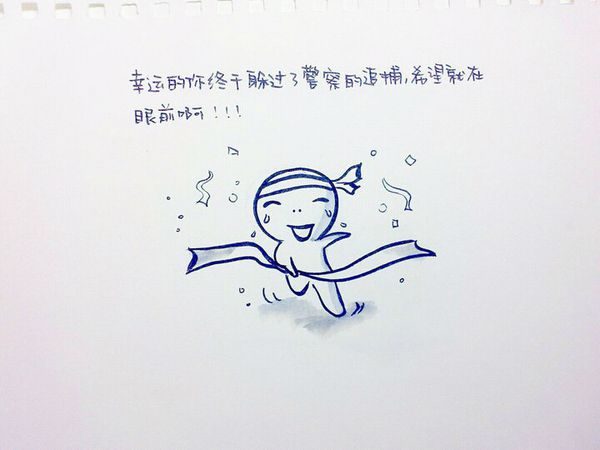 幸运的你终于躲过了警察的追捕,希望就在
眼前啊!!!